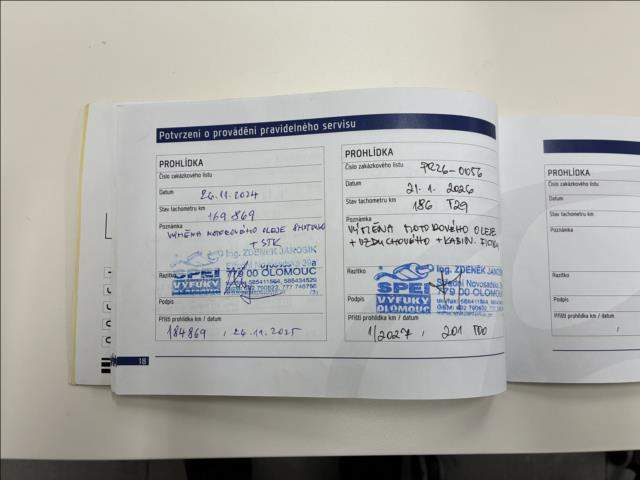 Potvrzení o provádění pravidelného servisu
PROHLÍDKA
Číslo zakázkového listu
Datum 26.11.2024
Stav tachometru km 169 869
Poznámka
VÝMĚNA MOTOROVÉHO OLEJE
+ STK
Ing. ZDENĚK JANOŠÍK
Razítko
779 00 OLOMOUC
SPEI
VÝFUKY
OLOMOUC
Podpis
Příští prohlídka km / datum
184869 , 26.11.2025
18
PROHLÍDKA
Číslo zakázkového listu PR26-0056
Datum 21.1. 2026
Stav tachometru km 186 729
Poznámka
VÝMĚNA MOTOROVÉHO OLEJE
+ VZDUCHOVÉHO + KABIN. FILTRU
Ing. ZDENĚK JANOŠÍK
Razítko
Střední Novosadská
779 00 OLOMOUC
SPEI
VÝFUKY
OLOMOUC
Podpis
Příští prohlídka km / datum
1/2027 , 201 700
PROHLÍDKA
Číslo zakázkového listu
Datum
Stav tachometru km
Poznámka
Razítko
Podpis
Příští prohlídka km / datum